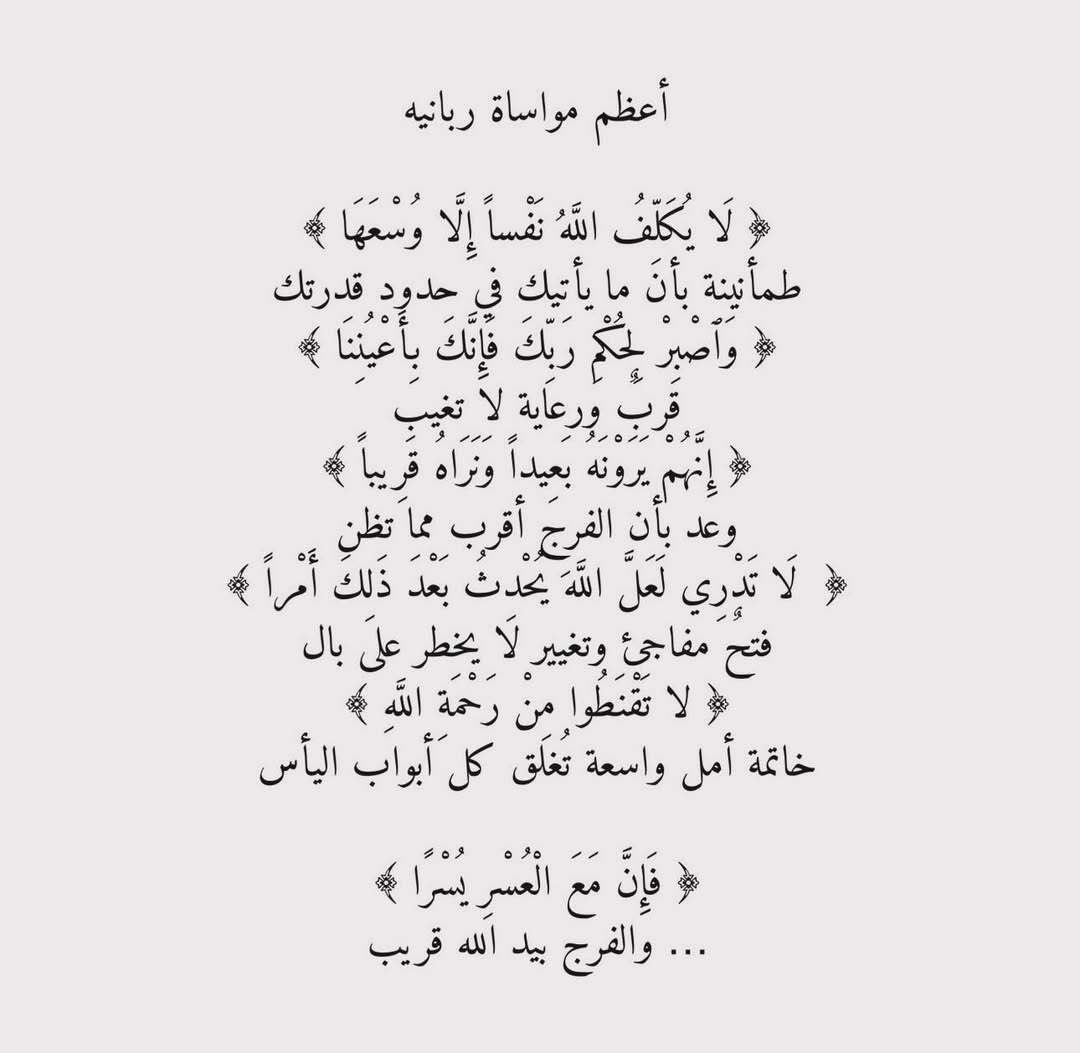 أعظم مواساة ربانيه
﴿ لَا يُكَلِّفُ اللَّهُ نَفْساً إِلَّا وُسْعَهَا ﴾
طمأنينة بأن ما يأتيك في حدود قدرتك
﴿ وَٱصْبِرْ لِحُكْمِ رَبِّكَ فَإِنَّكَ بِأَعْيُنِنَا ﴾
قربٌ ورعاية لا تغيب
﴿ إِنَّهُمْ يَرَوْنَهُ بَعِيداً وَنَرَاهُ قَرِيباً ﴾
وعد بأن الفرج أقرب مما تظن
﴿ لَا تَدْرِي لَعَلَّ اللَّهَ يُحْدِثُ بَعْدَ ذَلِكَ أَمْراً ﴾
فتحٌ مفاجئ وتغيير لا يخطر على بال
﴿ لا تَقْنَطُوا مِنْ رَحْمَةِ اللَّهِ ﴾
خاتمة أمل واسعة تُغلق كل أبواب اليأس
﴿ فَإِنَّ مَعَ الْعُسْرِ يُسْرًا ﴾
... والفرج بيد الله قريب